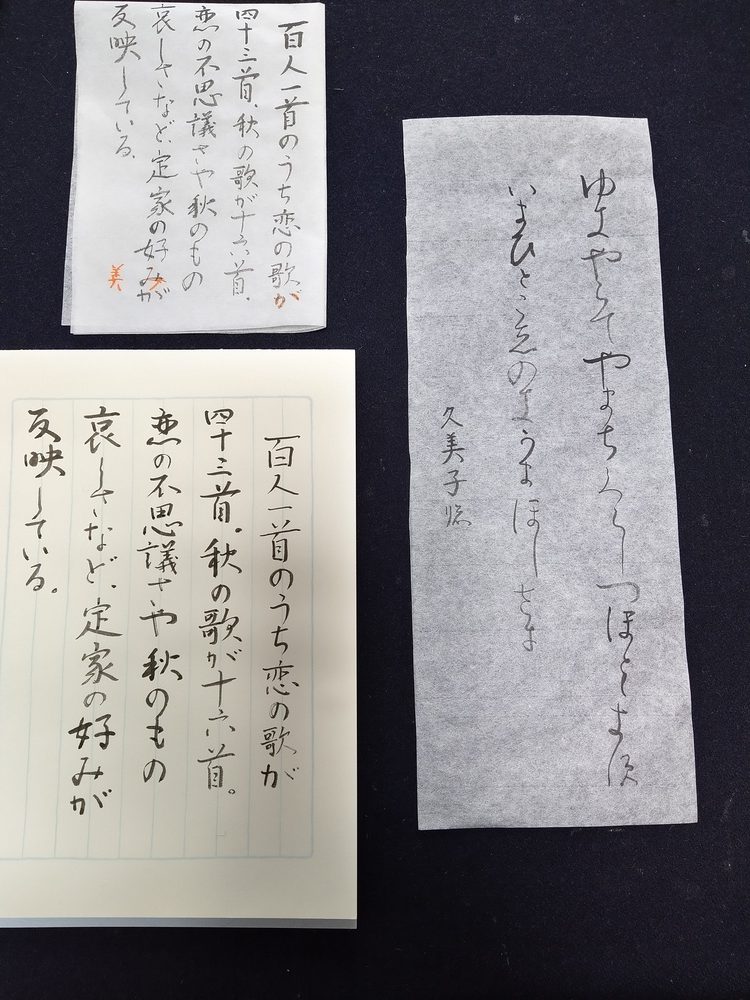 百人一首のうち恋の歌が
四十三首、秋の歌が十六首、
恋の不思議さや秋のもの
哀しさなど、定家の好みが
反映している。
美
百人一首のうち恋の歌が
四十三首。秋の歌が十六首。
恋の不思議さや秋のもの
哀しさなど、定家の好みが
反映している。
ゆきやらてやまちくらしつほとゝきす
いまひとこゑのきかまほしさに
久美子臨